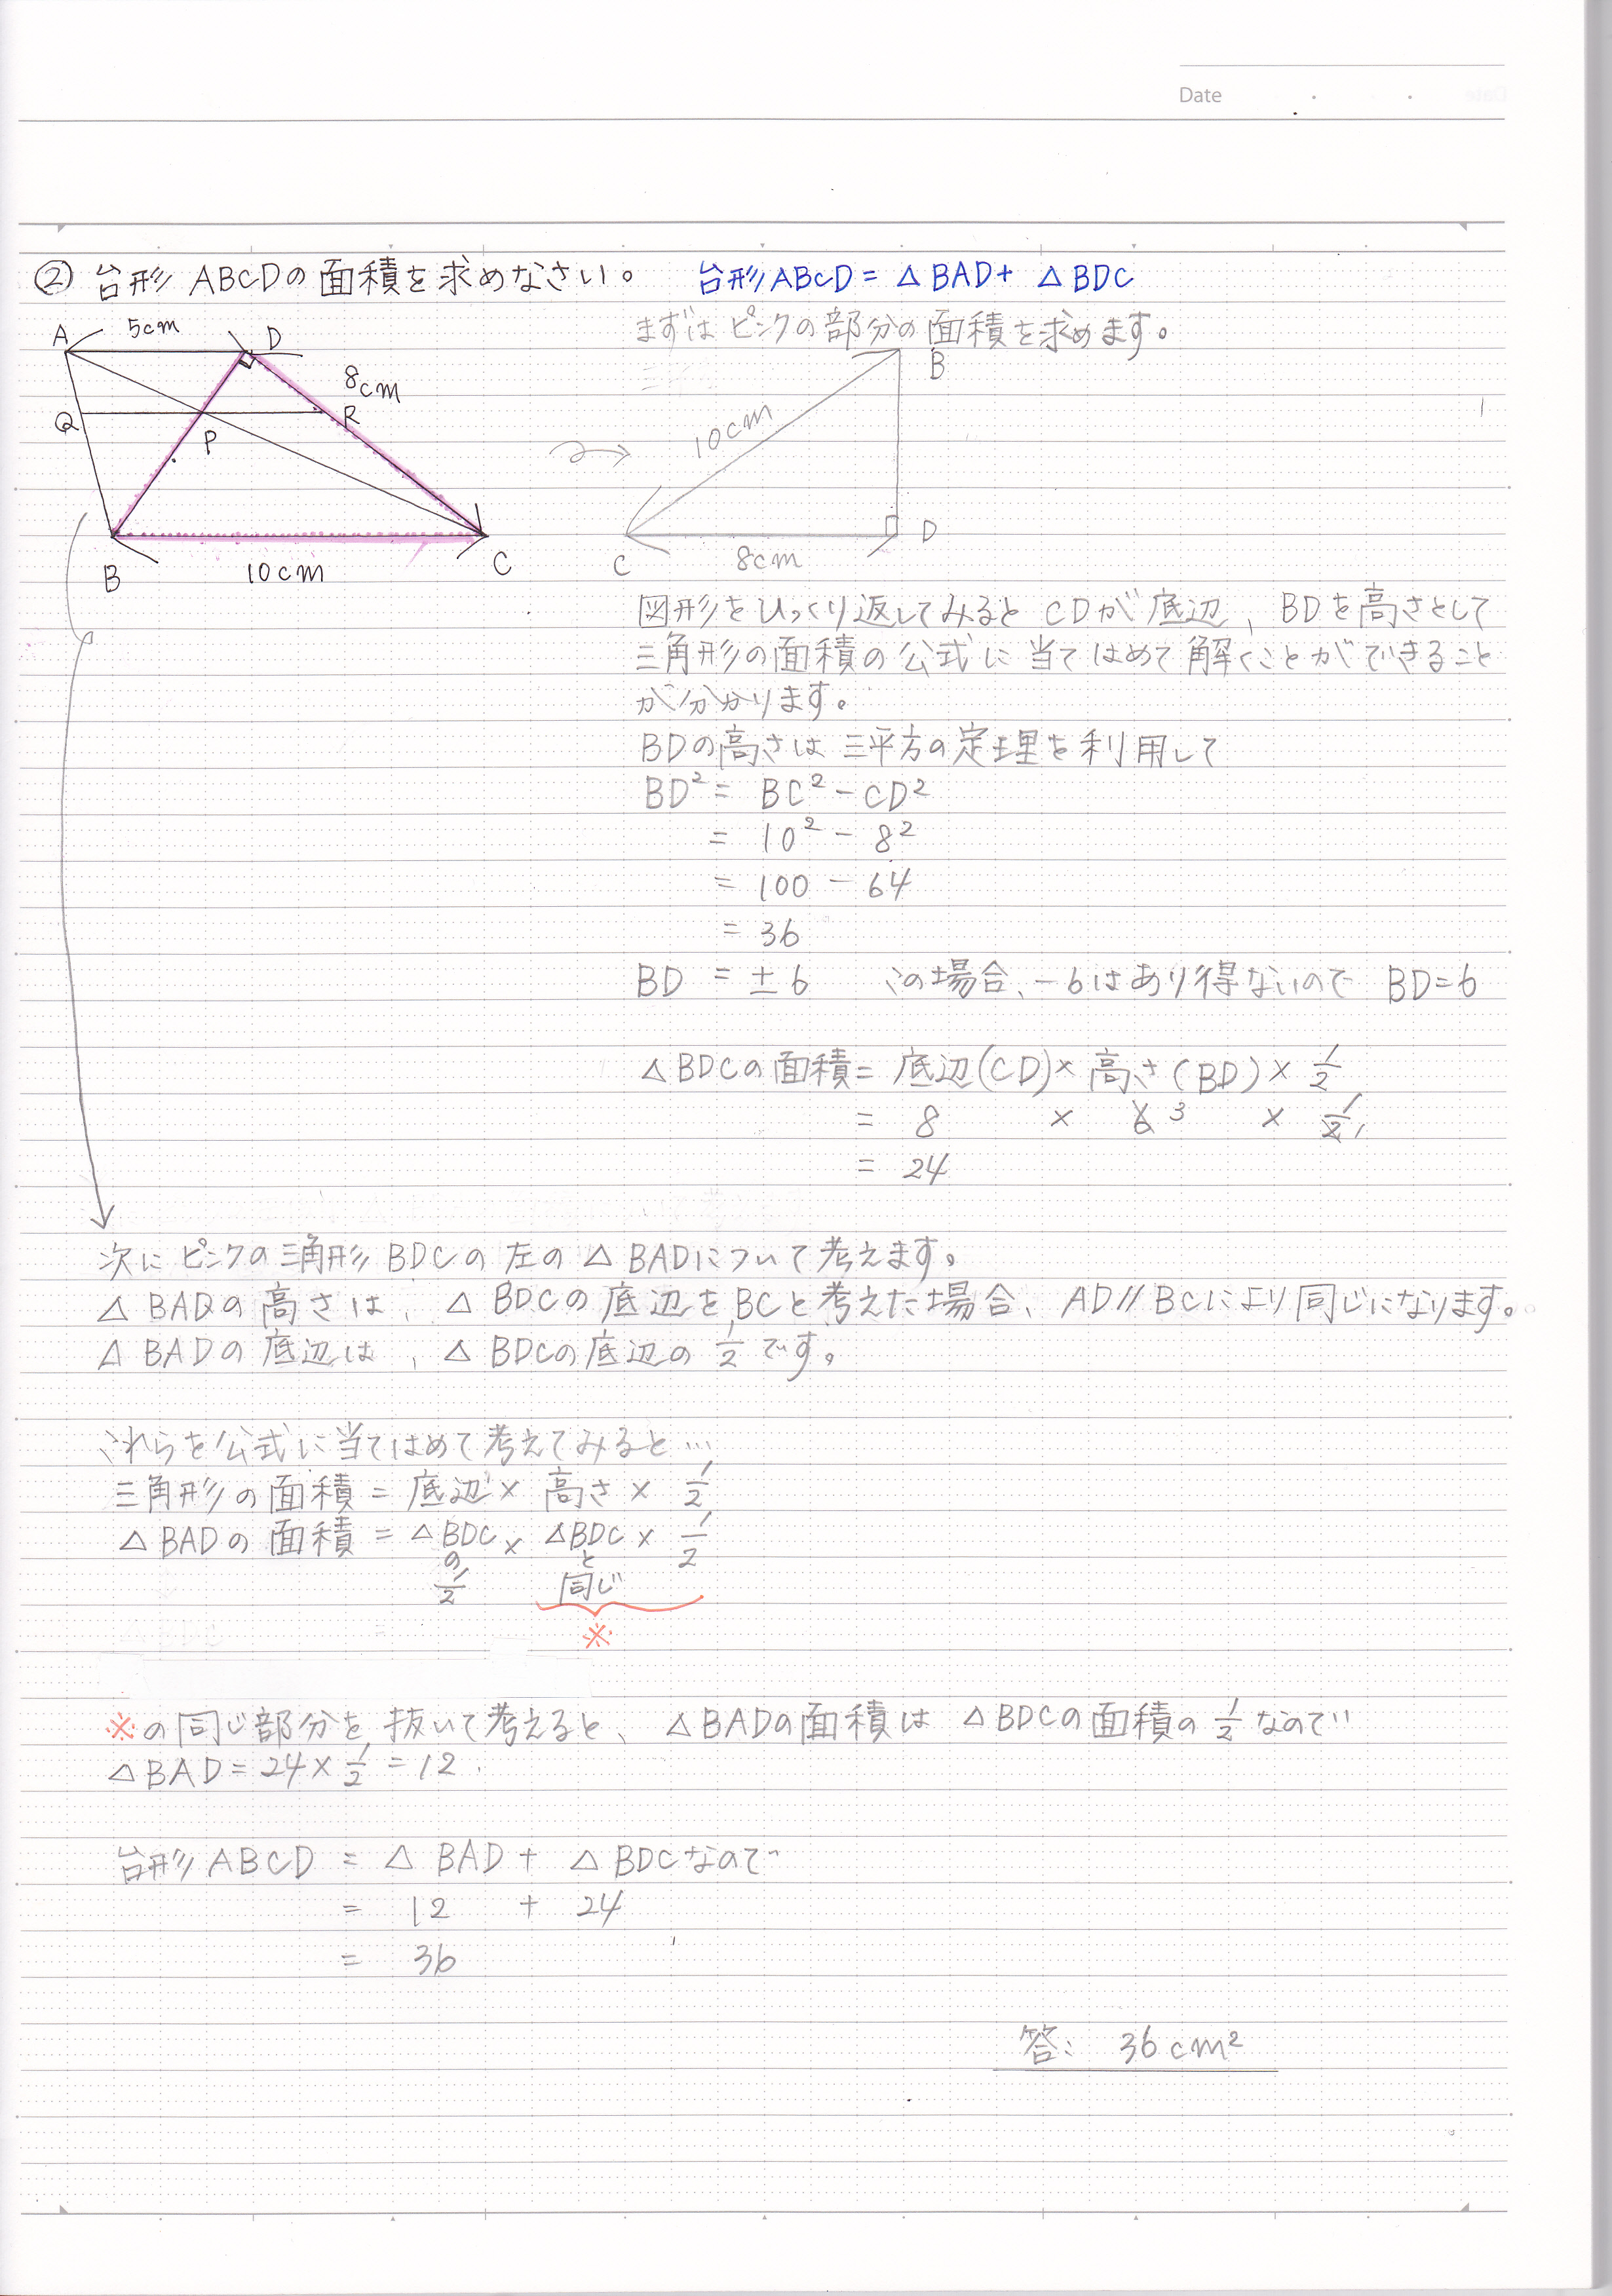 Date
② 台形 ABCDの面積を求めなさい。
台形ABCD = △BAD + △BDC
まずはピンクの部分の面積を求めます。
A 5cm D
8cm
Q P R
B 10cm C
B
10cm
C 8cm D
図形をひっくり返してみると CDが底辺、BDを高さとして
三角形の面積の公式に当てはめて解くことができること
が分かります。
BDの高さは三平方の定理を利用して
BD² = BC² - CD²
= 10² - 8²
= 100 - 64
= 36
BD = ±6 この場合、-6はあり得ないので BD=6
△BDCの面積 = 底辺(CD) × 高さ(BD) × 1/2
= 8 × 6 3 × 1/2 1
= 24
次にピンクの三角形BDCの左の△BADについて考えます。
△BADの高さは、△BDCの底辺をBCと考えた場合、AD//BCにより同じになります。
△BADの底辺は、△BDCの底辺の1/2です。
これらを公式に当てはめて考えてみると…
三角形の面積 = 底辺 × 高さ × 1/2
△BADの面積 = △BDCの1/2 × △BDCと同じ × 1/2
※
※の同じ部分を抜いて考えると、△BADの面積は△BDCの面積の1/2なので
△BAD = 24 × 1/2 = 12.
台形ABCD = △BAD + △BDCなので
= 12 + 24
= 36
答: 36cm²